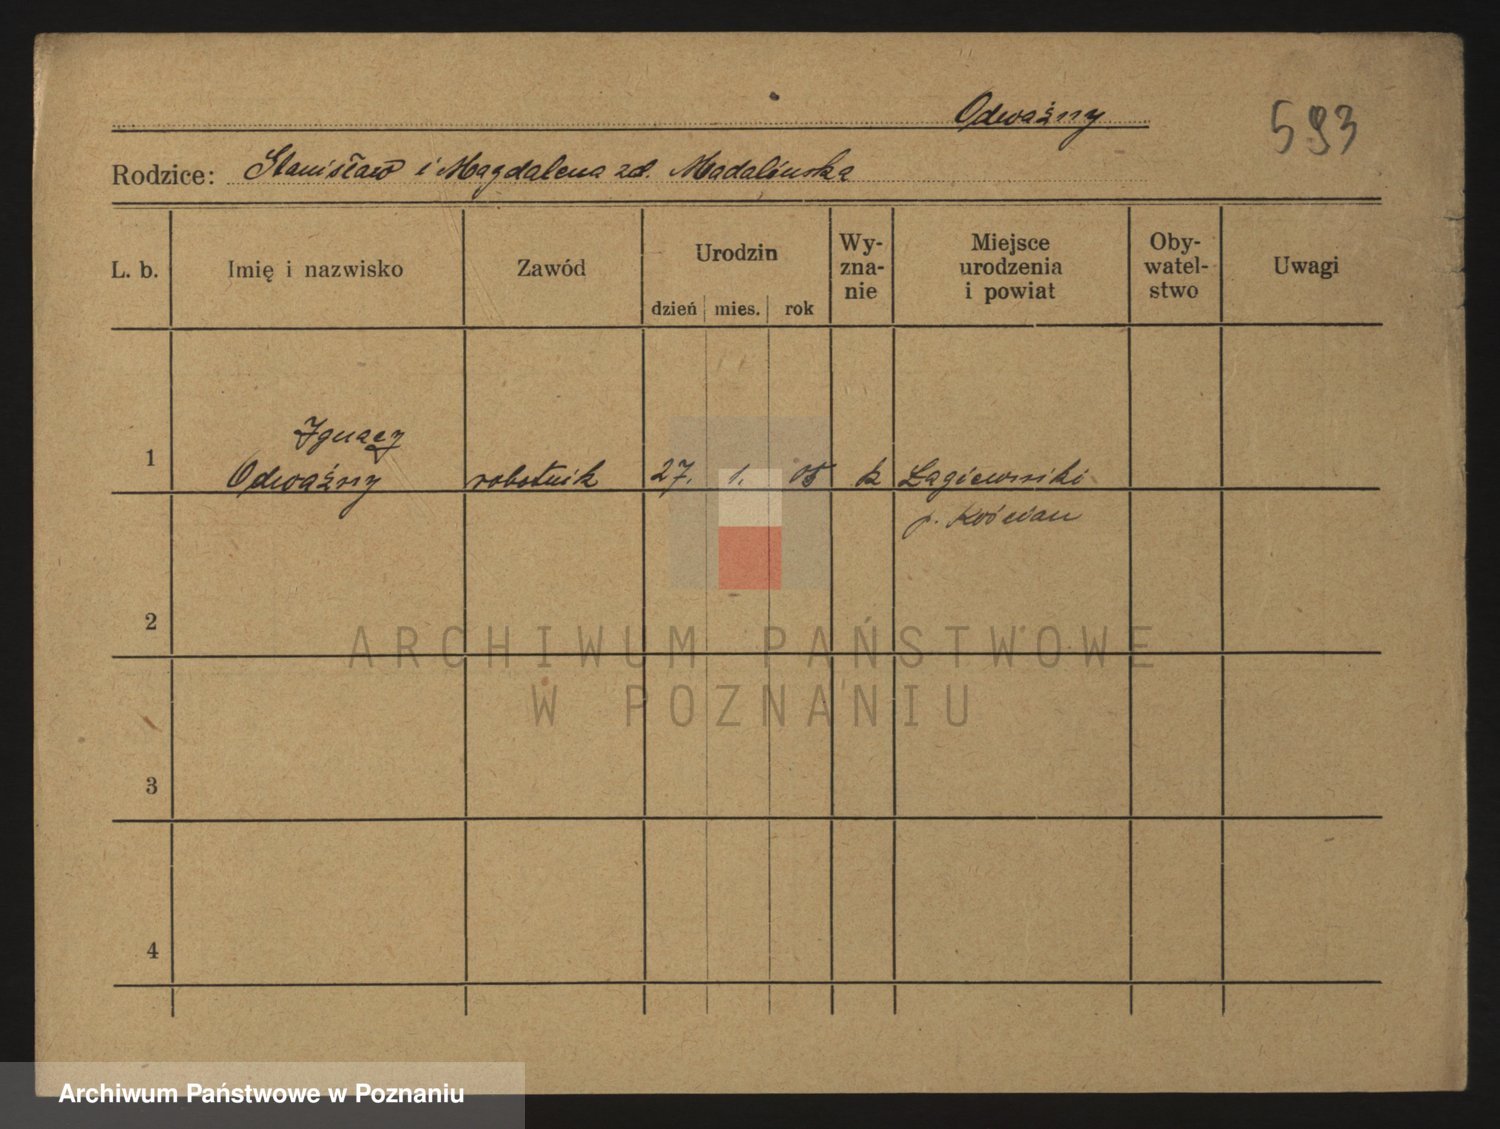 Odważny
593
Rodzice: Stanisław i Magdalena zd. Madalińska
L. b. Imię i nazwisko Zawód Urodzin Wy-zna-nie Miejsce urodzenia i powiat Oby-watel-stwo Uwagi
dzień mies. rok
Ignacy
1 Odważny robotnik 27. 1. 05 k Łagiewniki
p. Kościan
2
ARCHIWUM PAŃSTWOWE
W POZNANIU
3
4
Archiwum Państwowe w Poznaniu